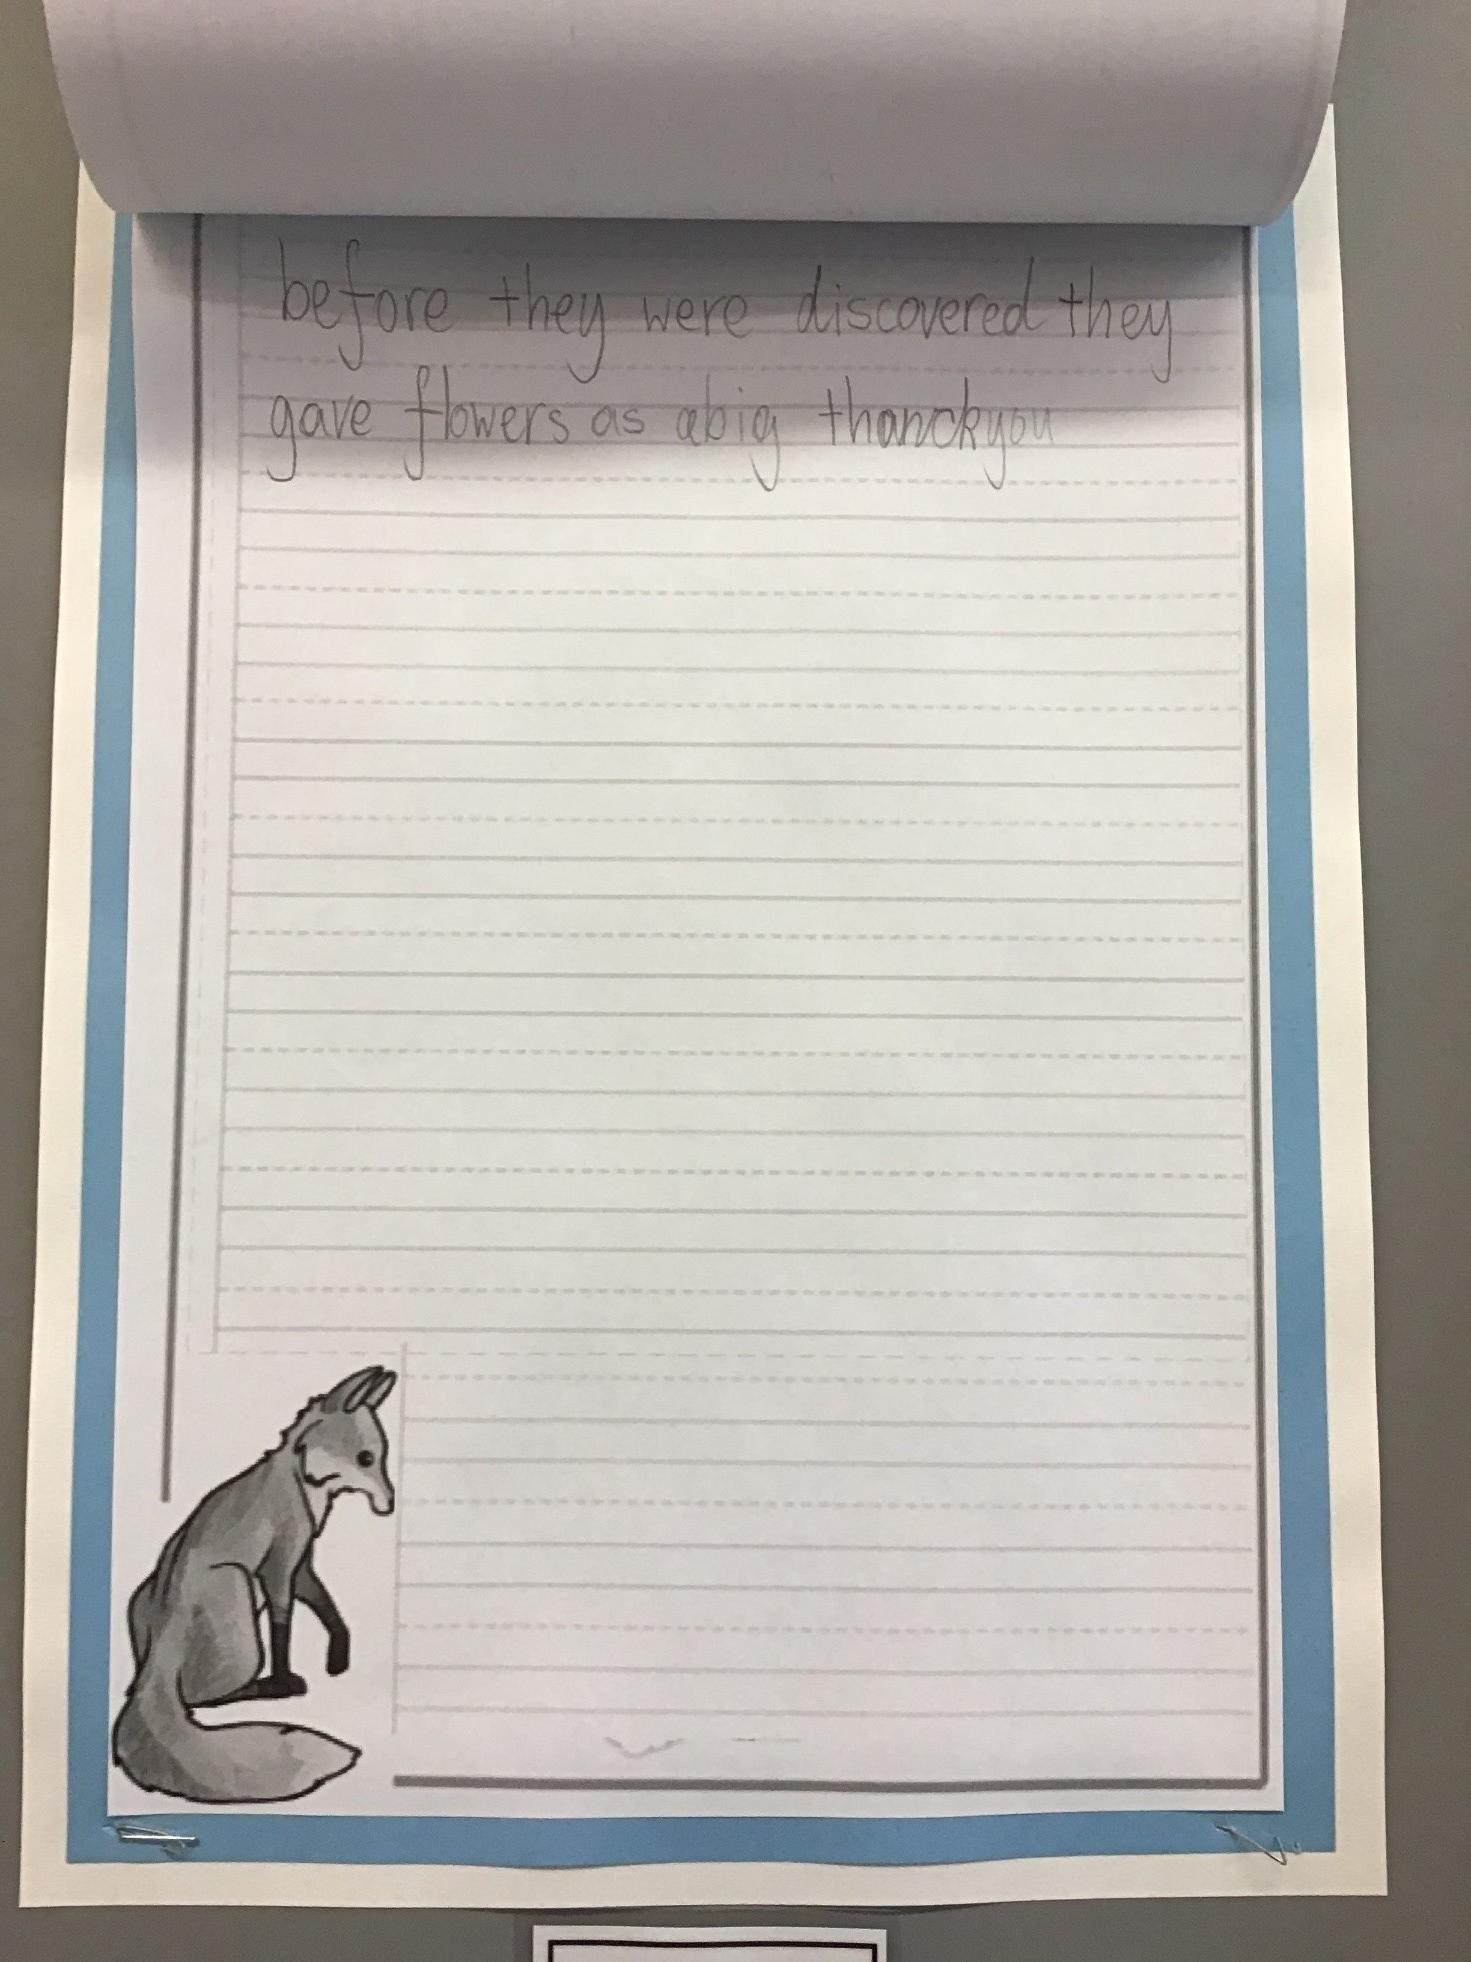 before they were discovered they
gave flowers as abig thanckyou